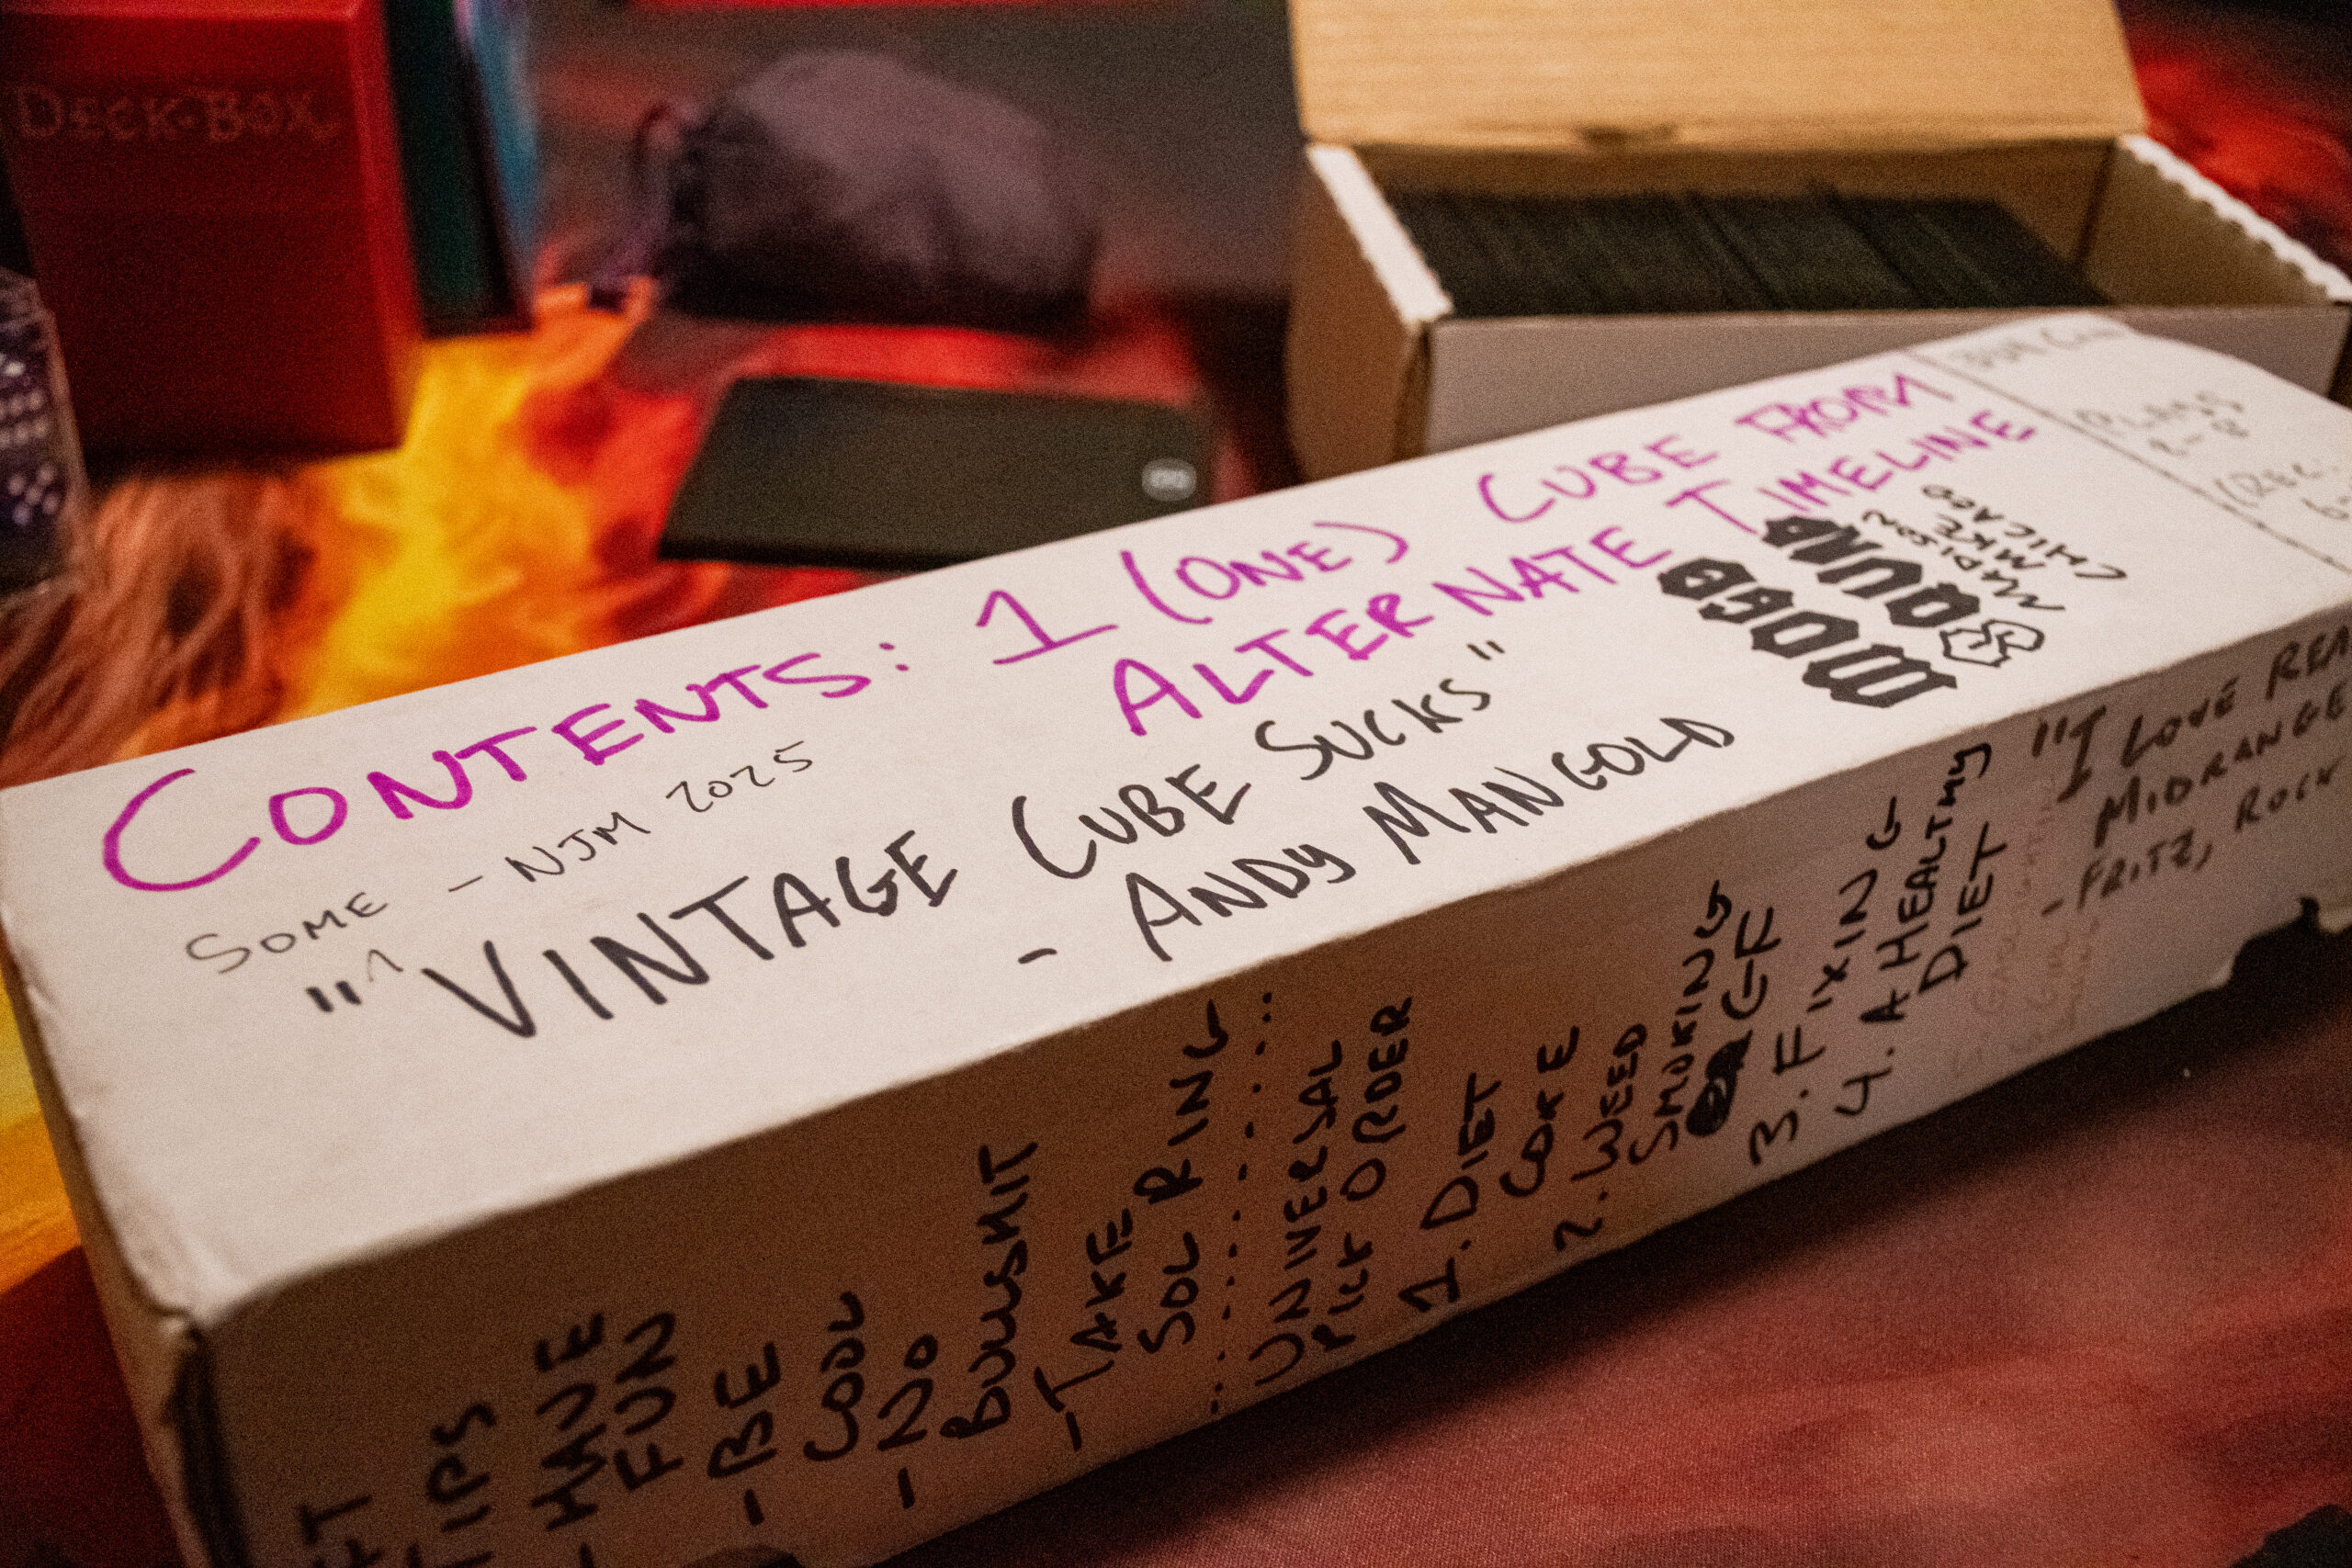 DECK BOX
CONTENTS: 1 (ONE) CUBE FROM
ALTERNATE TIMELINE
SOME - NJM 2025
"VINTAGE CUBE SUCKS"
- ANDY MANGOLD
CHICAGO
MKE
PLAYS
2-8
TIPS
- HAVE
FUN
- BE
COOL
- NO
BULLSHIT
- TAKE
SOL RING
UNIVERSAL
PICK ORDER
1. DIET
COKE
2. WEED
SMOKING
GF
3. FIXING
4. A HEALTHY
DIET
"I LOVE
MIDRANGE
- FRITZ, ROCK